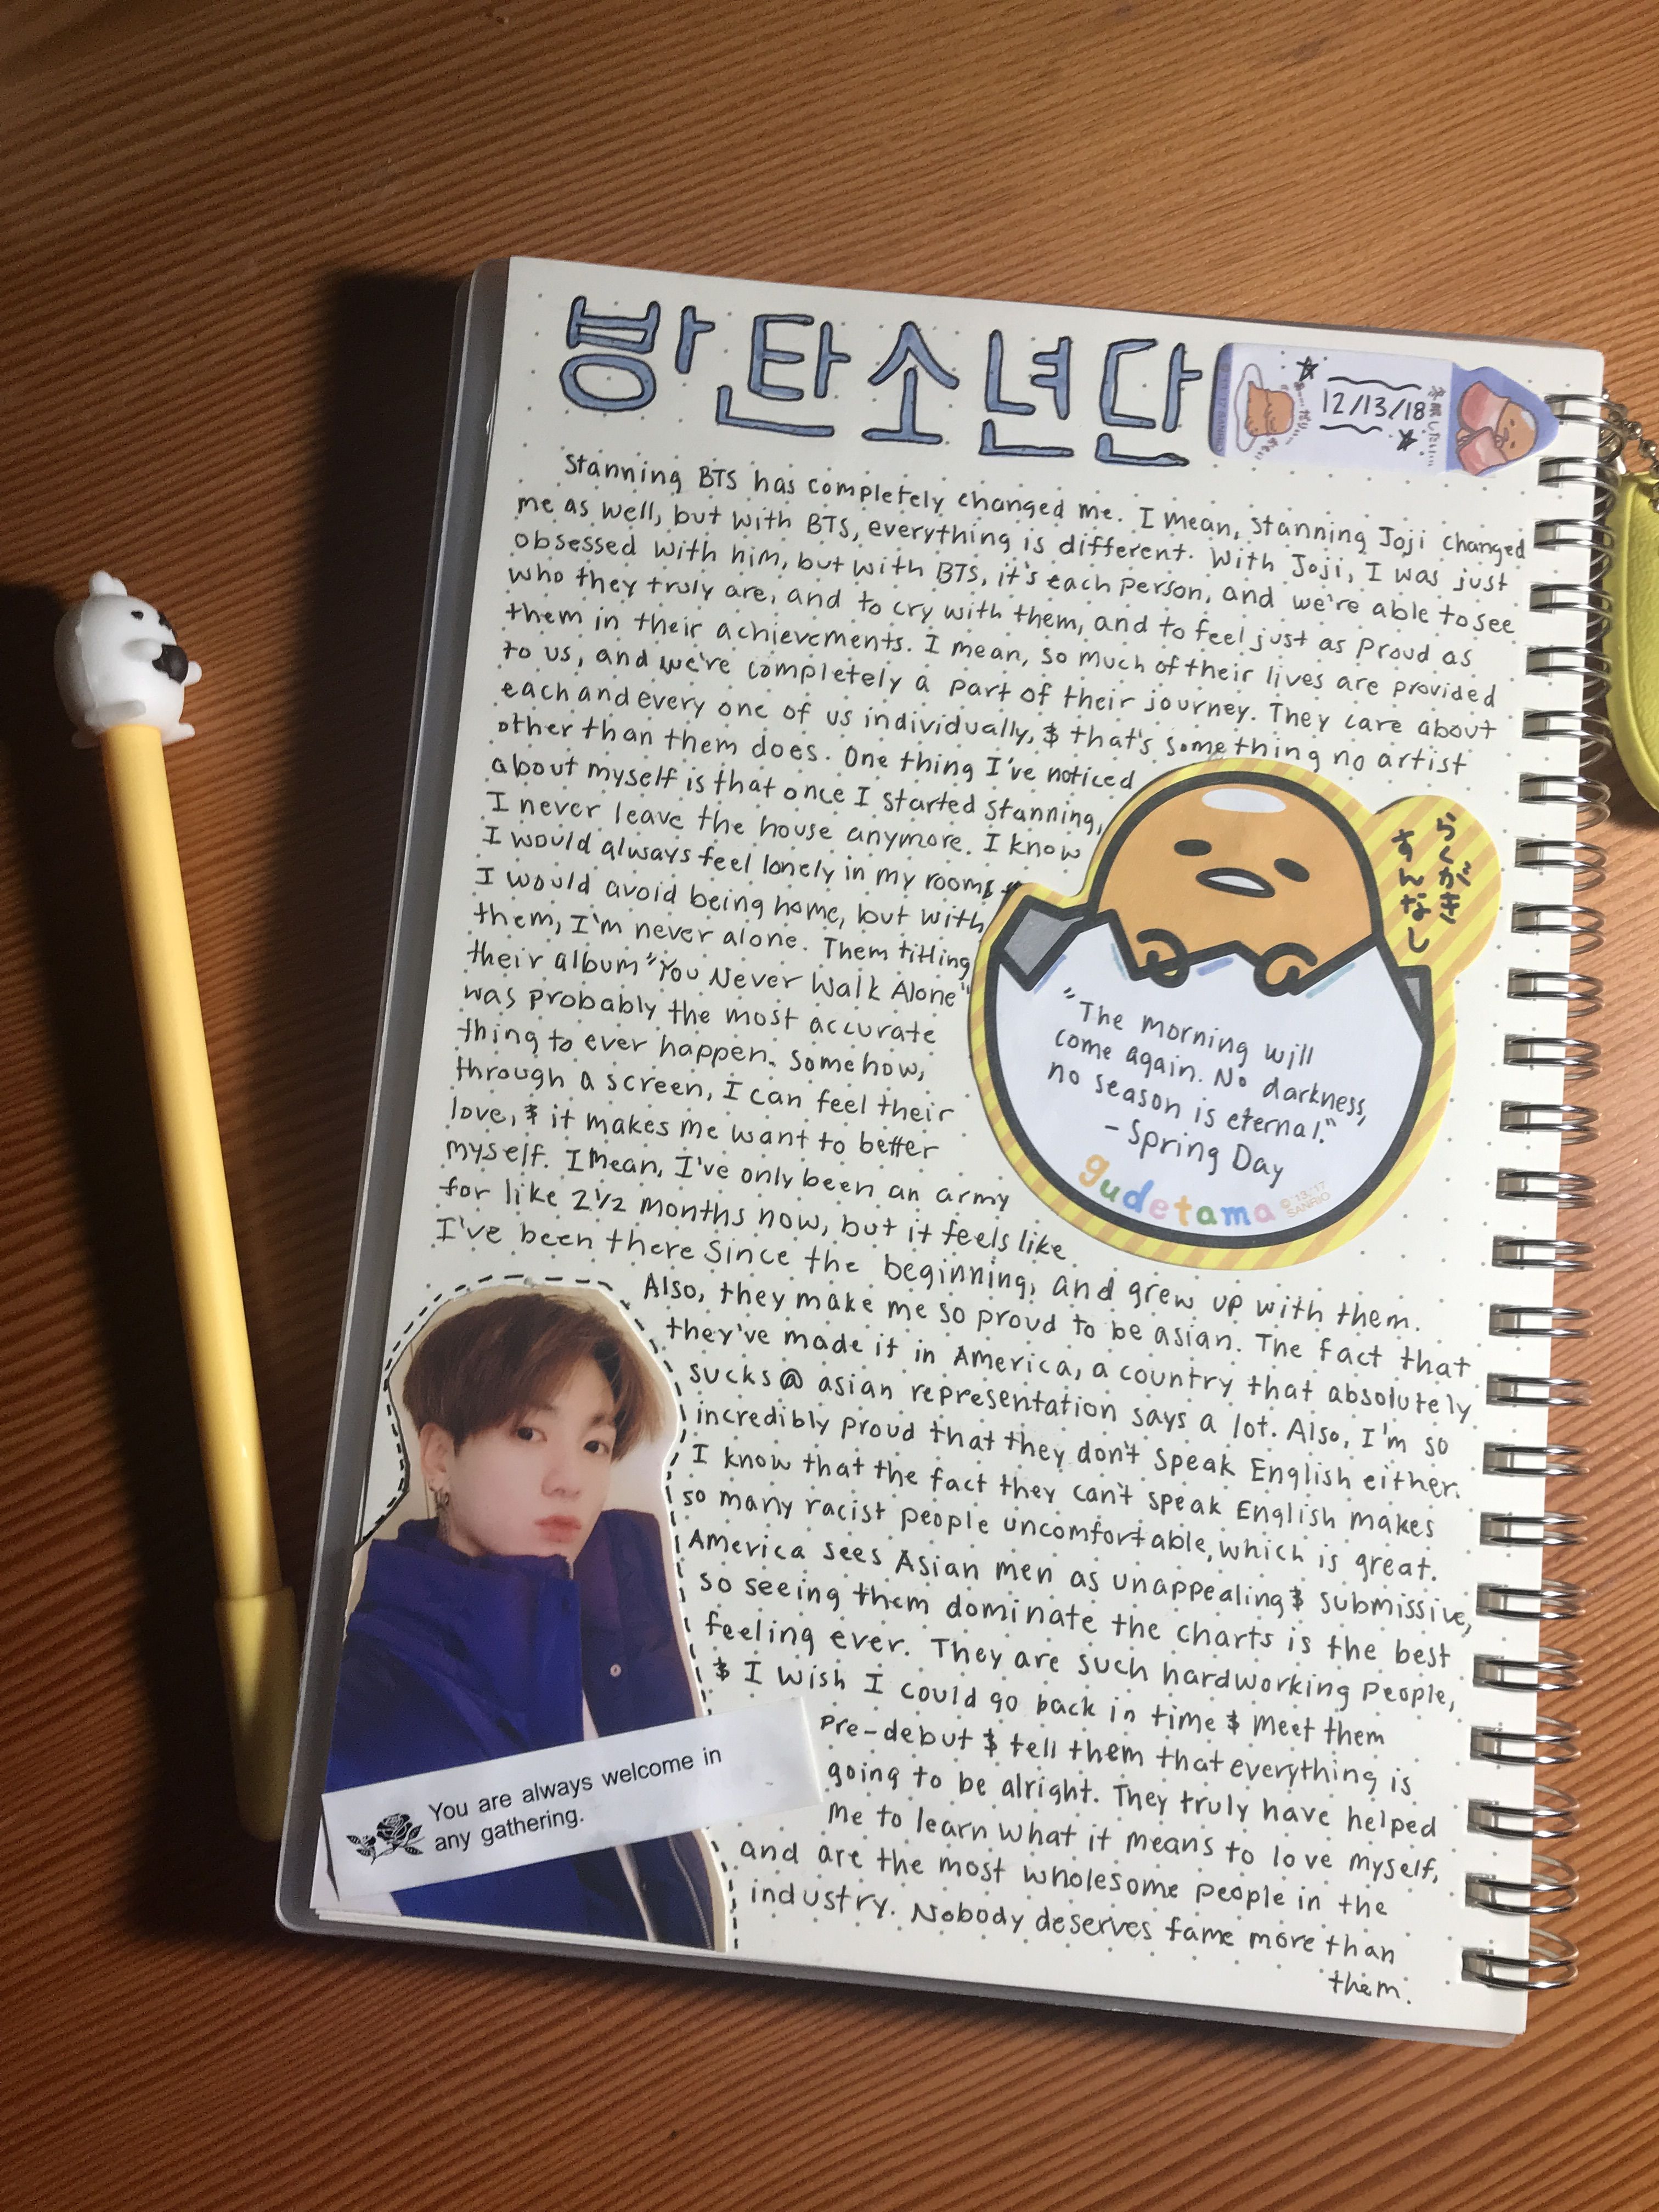 방탄소년단
12/13/18
Stanning BTS has completely changed me. I mean, stanning Joji changed
me as well, but with BTS, everything is different. With Joji, I was just
obsessed with him, but with BTS, it's each person, and we're able to see
who they truly are, and to cry with them, and to feel just as proud as
them in their achievements. I mean, so much of their lives are provided
to us, and we're completely a part of their journey. They care about
each and every one of us individually, & that's something no artist
other than them does. One thing I've noticed
about myself is that once I started stanning,
I never leave the house anymore. I know
I would always feel lonely in my room &
I would avoid being home, but with
them, I'm never alone. Them titling
their album "You Never Walk Alone"
was probably the most accurate
thing to ever happen. Somehow,
through a screen, I can feel their
love, & it makes me want to better
myself. I mean, I've only been an army
for like 2 1/2 months now, but it feels like
I've been there since the beginning, and grew up with them.
らくがき
すんなし
"The morning will
come again. No darkness,
no season is eternal."
- Spring Day
gudetama
© '13,'17
SANRIO
Also, they make me so proud to be asian. The fact that
they've made it in America, a country that absolutely
sucks @ asian representation says a lot. Also, I'm so
incredibly proud that they don't speak English either.
I know that the fact they can't speak English makes
so many racist people uncomfortable, which is great.
America sees Asian men as unappealing & submissive,
so seeing them dominate the charts is the best
feeling ever. They are such hardworking people,
& I wish I could go back in time & meet them
pre-debut & tell them that everything is
going to be alright. They truly have helped
me to learn what it means to love myself,
and are the most wholesome people in the
industry. Nobody deserves fame more than
them.
You are always welcome in
any gathering.